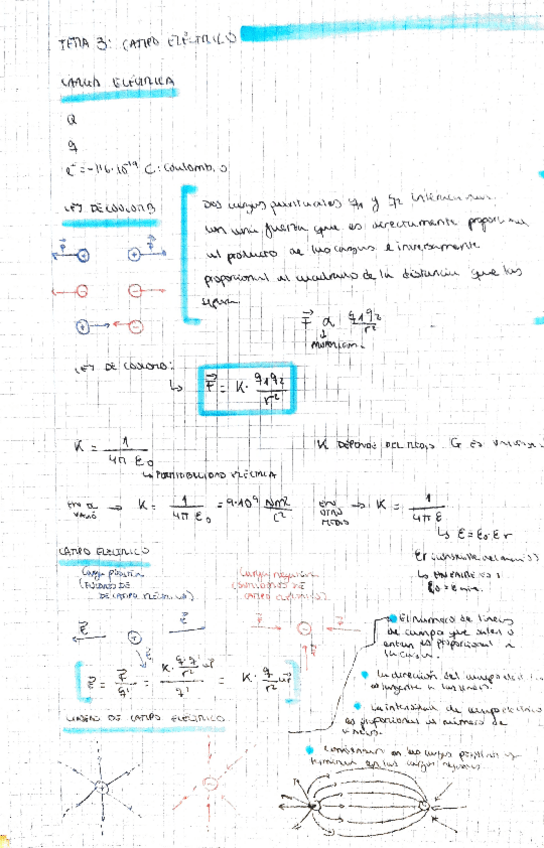 TEMA 3: CAMPO ELÉCTRICO
CARGA ELÉCTRICA
Q
q
e⁻ = -1'6·10⁻¹⁹ C: Coulombios
LEY DE COULOMB
Dos cargas puntuales q1 y q2
con una fuerza que es directamente proporcional
al producto de las cargas e inversamente
proporcional al cuadrado de la distancia que las
separa.
F ∝ q1q2/r²
LEY DE COULOMB:
↳ F = K· q1q2/r²
K = 1/4πε0
↳ PERMITIVIDAD ELÉCTRICA
K DEPENDE DEL MEDIO. G ES
EN EL VACÍO → K = 1/4πε0 = 9·10⁹ Nm²/C²
EN OTRO MEDIO → K = 1/4πε
↳ ε = ε0·εr
εr
CAMPO ELÉCTRICO
Carga positiva
(FUENTES DE
DE CAMPO ELÉCTRICO)
Carga negativa
(SUMIDEROS DE
CAMPO ELÉCTRICO)
E = F/q' = K· q·q'/r² ur/q' = K· q/r² ur
LÍNEAS DE CAMPO ELÉCTRICO
El número de líneas
de campo que salen o
entran es proporcional a
la carga.
La dirección del campo eléctrico
es tangente a las líneas.
La intensidad de campo eléctrico
es proporcional al número de
líneas.
Comienzan en las cargas positivas y
terminan en las cargas negativas